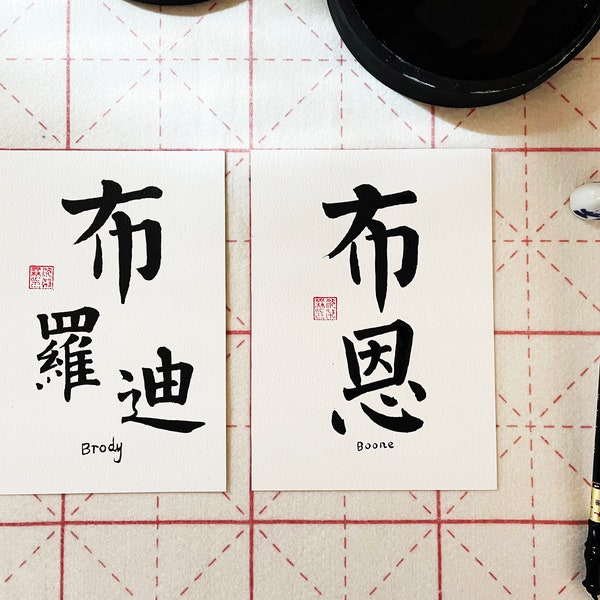 布
羅
迪
Brody
布
恩
Boone